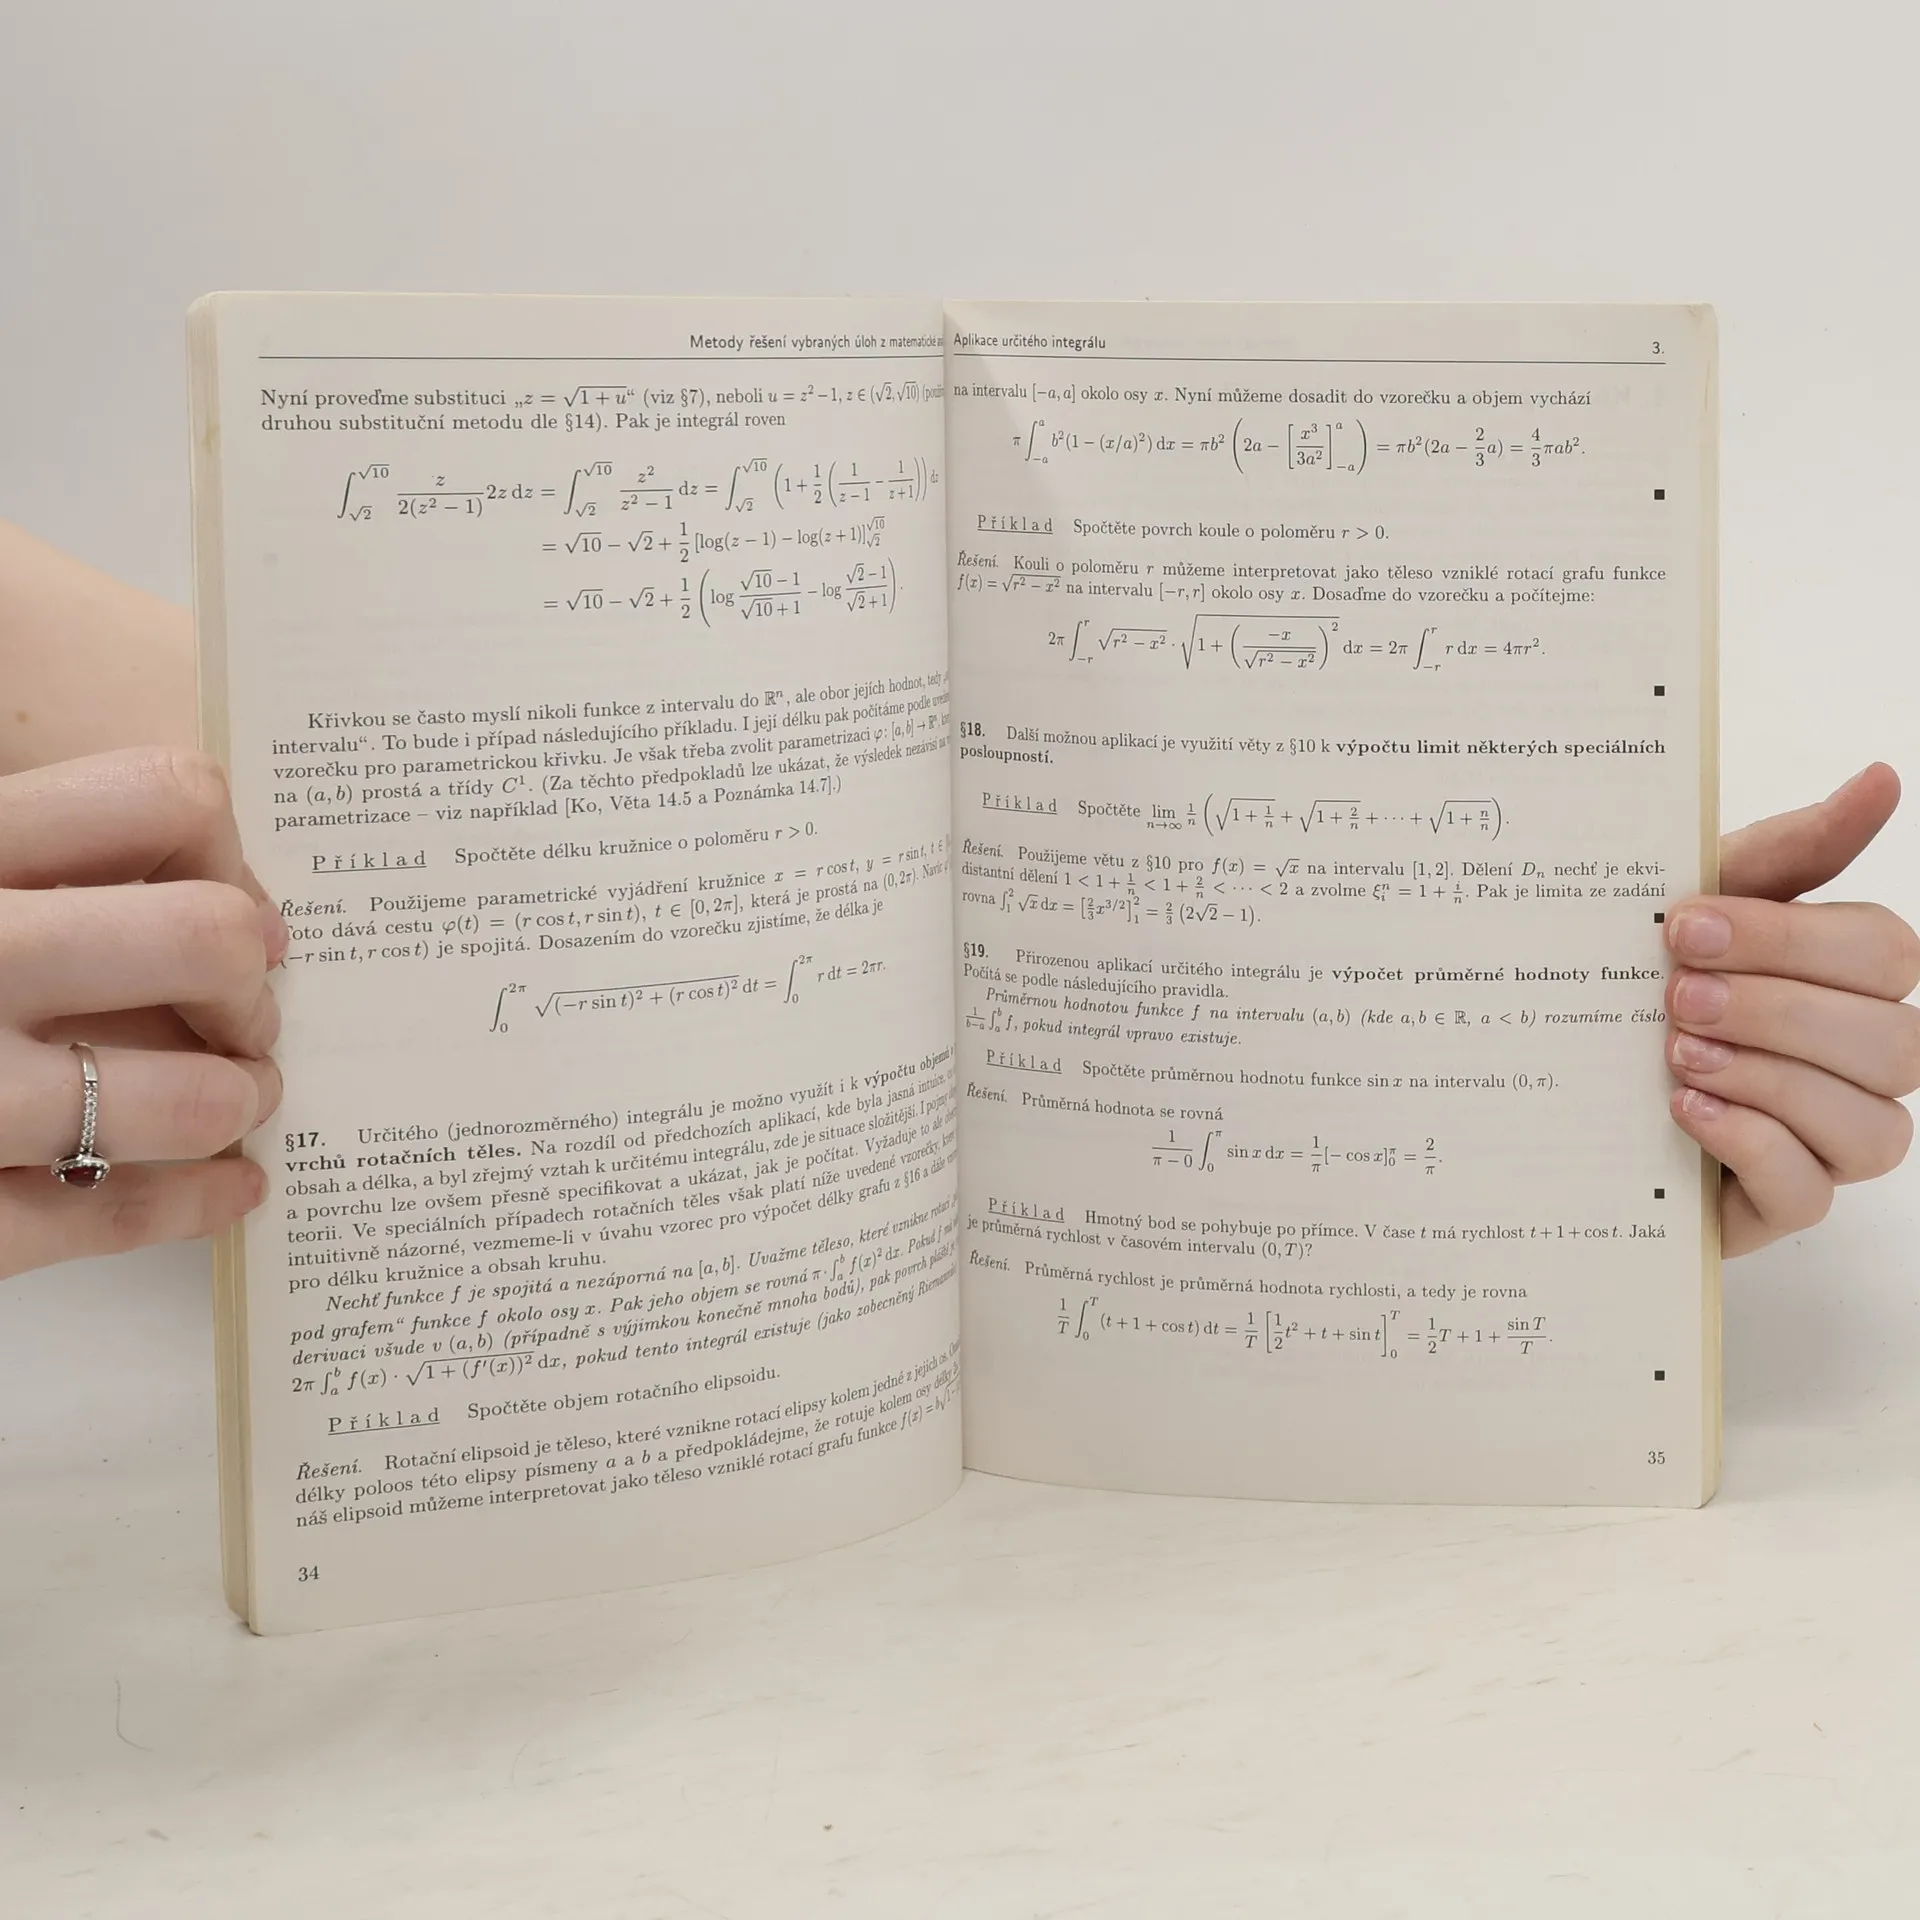 Metody řešení vybraných úloh z matematické
Nyní proveďme substituci „z = √(1 + u)“ (viz §7), neboli u = z² − 1, z ∈ (√2, √10)
druhou substituční metodu dle §14). Pak je integrál roven
∫_{√2}^{√10} z/(2(z² − 1)) 2z dz = ∫_{√2}^{√10} z²/(z² − 1) dz = ∫_{√2}^{√10} (1 + 1/2 (1/(z − 1) − 1/(z + 1))) dz
= √10 − √2 + 1/2 [log(z − 1) − log(z + 1)]_{√2}^{√10}
= √10 − √2 + 1/2 (log (√10 − 1)/(√10 + 1) − log (√2 − 1)/(√2 + 1)).
Křivkou se často myslí nikoli funkce z intervalu do ℝⁿ, ale obor jejích hodnot, tedy
intervalu“. To bude i případ následujícího příkladu. I její délku pak počítáme podle
vzorečku pro parametrickou křivku. Je však třeba zvolit parametrizaci φ: [a, b] → ℝⁿ,
na (a, b) prostá a třídy C¹. (Za těchto předpokladů lze ukázat, že výsledek nezávisí na
parametrizace – viz například [Ko, Věta 14.5 a Poznámka 14.7].)
Příklad Spočtěte délku kružnice o poloměru r > 0.
Řešení. Použijeme parametrické vyjádření kružnice x = r cos t, y = r sin t, t ∈
Toto dává cestu φ(t) = (r cos t, r sin t), t ∈ [0, 2π], která je prostá na (0, 2π). Navíc
(−r sin t, r cos t) je spojitá. Dosazením do vzorečku zjistíme, že délka je
∫_0^{2π} √((−r sin t)² + (r cos t)²) dt = ∫_0^{2π} r dt = 2πr.
§17. Určitého (jednorozměrného) integrálu je možno využít i k výpočtu objemů
vrchů rotačních těles. Na rozdíl od předchozích aplikací, kde byla jasná intuice,
obsah a délka, a byl zřejmý vztah k určitému integrálu, zde je situace složitější. I pojmy
a povrchu lze ovšem přesně specifikovat a ukázat, jak je počítat. Vyžaduje to ale
teorii. Ve speciálních případech rotačních těles však platí níže uvedené vzorečky,
intuitivně názorné, vezmeme-li v úvahu vzorec pro výpočet délky grafu z §16 a dále
pro délku kružnice a obsah kruhu.
Nechť funkce f je spojitá a nezáporná na [a, b]. Uvažme těleso, které vznikne rotací
pod grafem“ funkce f okolo osy x. Pak jeho objem se rovná π · ∫_a^b f(x)² dx. Pokud f má
derivaci všude v (a, b) (případně s výjimkou konečně mnoha bodů), pak povrch pláště
2π ∫_a^b f(x) · √(1 + (f′(x))²) dx, pokud tento integrál existuje (jako zobecněný
Příklad Spočtěte objem rotačního elipsoidu.
Řešení. Rotační elipsoid je těleso, které vznikne rotací elipsy kolem jedné z jejích os.
délky poloos této elipsy písmeny a a b a předpokládejme, že rotuje kolem osy délky
náš elipsoid můžeme interpretovat jako těleso vzniklé rotací grafu funkce f(x) =
34
Aplikace určitého integrálu 3.
na intervalu [−a, a] okolo osy x. Nyní můžeme dosadit do vzorečku a objem vychází
π ∫_{−a}^{a} b²(1 − (x/a)²) dx = πb² (2a − [x³/3a²]_{−a}^{a}) = πb²(2a − 2/3 a) = 4/3 πab².
■
Příklad Spočtěte povrch koule o poloměru r > 0.
Řešení. Kouli o poloměru r můžeme interpretovat jako těleso vzniklé rotací grafu funkce
f(x) = √(r² − x²) na intervalu [−r, r] okolo osy x. Dosaďme do vzorečku a počítejme:
2π ∫_{−r}^{r} √(r² − x²) · √(1 + (−x/√(r² − x²))²) dx = 2π ∫_{−r}^{r} r dx = 4πr².
■
§18. Další možnou aplikací je využití věty z §10 k výpočtu limit některých speciálních
posloupností.
Příklad Spočtěte lim_{n→∞} 1/n (√(1 + 1/n) + √(1 + 2/n) + ⋯ + √(1 + n/n)).
Řešení. Použijeme větu z §10 pro f(x) = √x na intervalu [1, 2]. Dělení Dₙ nechť je ekvi-
distantní dělení 1 < 1 + 1/n < 1 + 2/n < ⋯ < 2 a zvolme ξᵢⁿ = 1 + i/n. Pak je limita ze zadání
rovna ∫_1^2 √x dx = [2/3 x^{3/2}]_1^2 = 2/3 (2√2 − 1).
■
§19. Přirozenou aplikací určitého integrálu je výpočet průměrné hodnoty funkce.
Počítá se podle následujícího pravidla.
Průměrnou hodnotou funkce f na intervalu (a, b) (kde a, b ∈ ℝ, a < b) rozumíme číslo
1/(b−a) ∫_a^b f, pokud integrál vpravo existuje.
Příklad Spočtěte průměrnou hodnotu funkce sin x na intervalu (0, π).
Řešení. Průměrná hodnota se rovná
1/(π − 0) ∫_0^π sin x dx = 1/π [− cos x]_0^π = 2/π.
■
Příklad Hmotný bod se pohybuje po přímce. V čase t má rychlost t + 1 + cos t. Jaká
je průměrná rychlost v časovém intervalu (0, T)?
Řešení. Průměrná rychlost je průměrná hodnota rychlosti, a tedy je rovna
1/T ∫_0^T (t + 1 + cos t) dt = 1/T [1/2 t² + t + sin t]_0^T = 1/2 T + 1 + sin T/T.
■
35